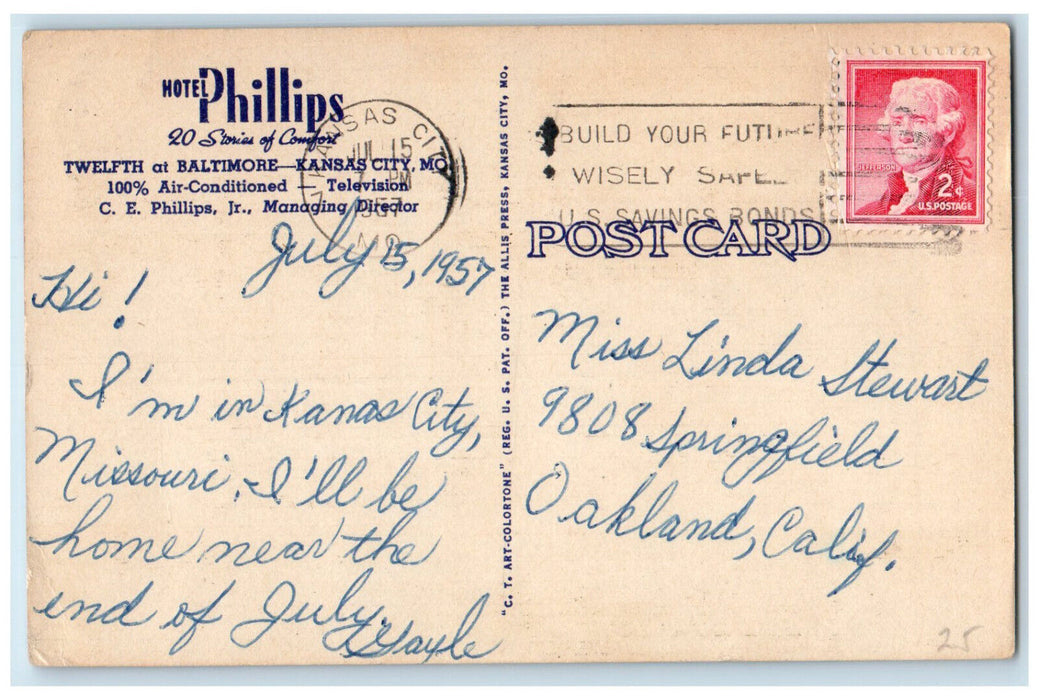 HOTEL Phillips
20 Stories of Comfort
TWELFTH at BALTIMORE—KANSAS CITY, MO.
100% Air-Conditioned Television
C. E. Phillips, Jr., Managing Director
KANSAS CITY
JUL 15
PM
1957
MO
July 15, 1957
Hi!
I'm in Kanas City,
Missouri. I'll be
home near the
end of July.
Gayle
"C. T. ART-COLORTONE" (REG. U. S. PAT. OFF.) THE ALLIS PRESS, KANSAS CITY, MO.
BUILD YOUR FUTURE
WISELY SAFEL
U.S. SAVINGS BONDS
JEFFERSON
2¢
U.S. POSTAGE
POST CARD
Miss Linda Stewart
9808 Springfield
Oakland, Calif.
25